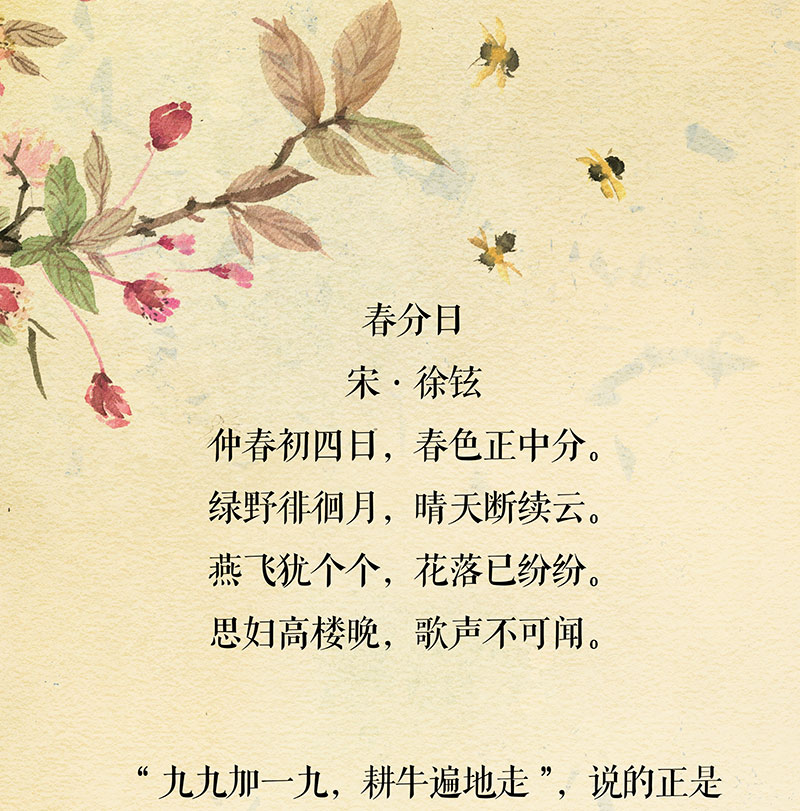 春分日
宋·徐铉
仲春初四日，春色正中分。
绿野徘徊月，晴天断续云。
燕飞犹个个，花落已纷纷。
思妇高楼晚，歌声不可闻。
“九九加一九，耕牛遍地走”，说的正是